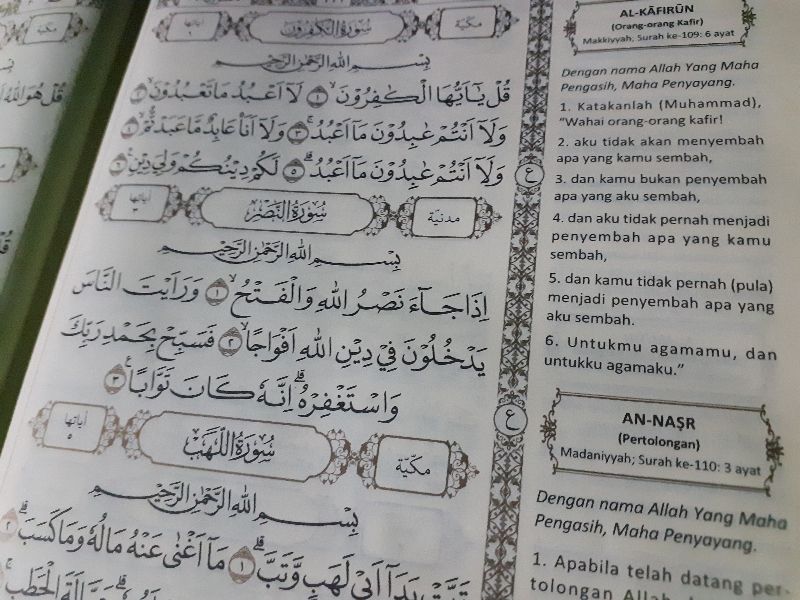 آياتها ٦
سُوْرَةُ الْكٰفِرُوْنَ
مكيّة
بِسْــمِ اللهِ الرَّحْمٰنِ الرَّحِيْمِ
قُلْ يٰٓاَيُّهَا الْكٰفِرُوْنَۙ ١ لَآ اَعْبُدُ مَا تَعْبُدُوْنَۙ ٢
وَلَآ اَنْتُمْ عٰبِدُوْنَ مَآ اَعْبُدُۚ ٣ وَلَآ اَنَا۠ عَابِدٌ مَّا عَبَدْتُّمْۙ ٤
وَلَآ اَنْتُمْ عٰبِدُوْنَ مَآ اَعْبُدُۗ ٥ لَكُمْ دِيْنُكُمْ وَلِيَ دِيْنِࣖ ٦
مدنيّة
سُوْرَةُ النَّصْرِ
آياتها ٣
بِسْــمِ اللهِ الرَّحْمٰنِ الرَّحِيْمِ
اِذَا جَاۤءَ نَصْرُ اللهِ وَالْفَتْحُۙ ١ وَرَاَيْتَ النَّاسَ
يَدْخُلُوْنَ فِيْ دِيْنِ اللهِ اَفْوَاجًاۙ ٢ فَسَبِّحْ بِحَمْدِ رَبِّكَ
وَاسْتَغْفِرْهُۗ اِنَّهٗ كَانَ تَوَّابًاࣖ ٣
مكيّة
سُوْرَةُ اللَّهَبِ
آياتها ٥
بِسْــمِ اللهِ الرَّحْمٰنِ الرَّحِيْمِ
تَبَّتْ يَدَآ اَبِيْ لَهَبٍ وَّتَبَّۗ ١ مَآ اَغْنٰى عَنْهُ مَالُهٗ وَمَا كَسَبَۗ ٢
حَمَّالَةَ الْحَطَبِ
ع
ع
AL-KĀFIRŪN
(Orang-orang Kafir)
Makkiyyah; Surah ke-109: 6 ayat
Dengan nama Allah Yang Maha
Pengasih, Maha Penyayang.
1. Katakanlah (Muhammad),
"Wahai orang-orang kafir!
2. aku tidak akan menyembah
apa yang kamu sembah,
3. dan kamu bukan penyembah
apa yang aku sembah,
4. dan aku tidak pernah menjadi
penyembah apa yang kamu
sembah,
5. dan kamu tidak pernah (pula)
menjadi penyembah apa yang
aku sembah.
6. Untukmu agamamu, dan
untukku agamaku."
AN-NAṢR
(Pertolongan)
Madaniyyah; Surah ke-110: 3 ayat
Dengan nama Allah Yang Maha
Pengasih, Maha Penyayang.
1. Apabila telah datang per-
tolongan Allah